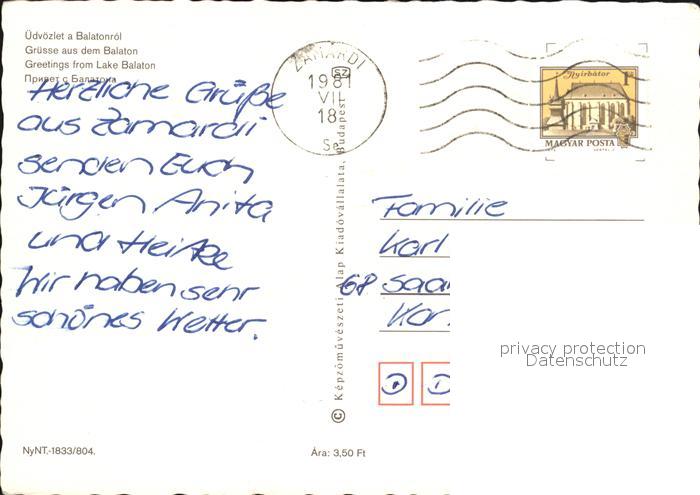 Üdvözlet a Balatonról
Grüsse aus dem Balaton
Greetings from Lake Balaton
Привет с Балатона
Herzliche Grüße
aus Zamardi
senden Euch
Jürgen Anita
und Heike
Wir haben sehr
schönes Wetter.
NyNT.-1833/804.
ZAMÁRDI
SZ
1981
VII
18
© Képzőművészeti Alap Kiadóvállalata, Budapest
Ára: 3,50 Ft
Nyírbátor
MAGYAR POSTA
Familie
Karl
68 Saar
Kar.
D
privacy protection
Datenschutz